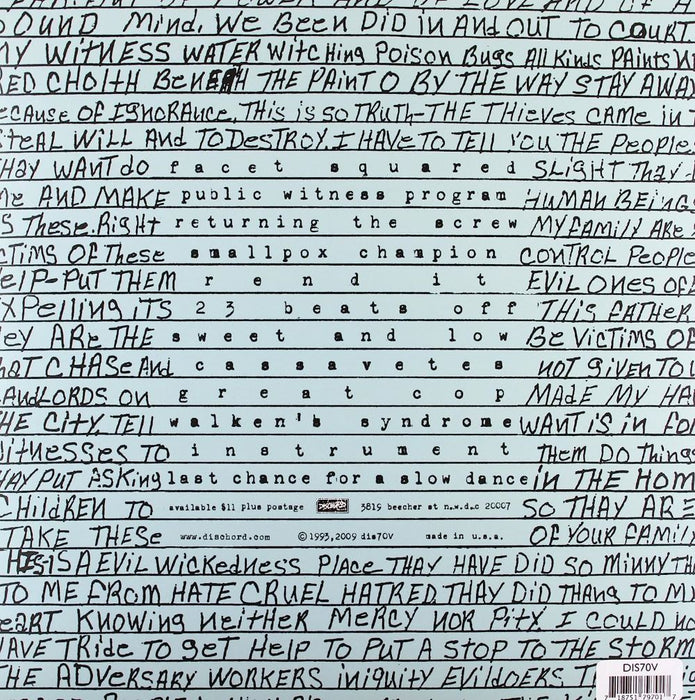 OF POWER AND OF LOVE AND OF A
SOUND MIND, WE BEEN DID IN AND OUT TO COURT
MY WITNESS WATER WITCHING POISON BUGS ALL KINDS PAINTS
RED CHOLTH BENETH THE PAINT O BY THE WAY STAY AWAY
BECAUSE OF IGNORANCE, THIS IS SO TRUTH-THE THIEVES CAME IN
STEAL WILL AND TO DESTROY. I HAVE TO TELL YOU THE PEOPLE
THAY WANT DO facet squared SLIGHT THAY
ME AND MAKE public witness program HUMAN BEINGS
THESE. RIGHT returning the screw MY FAMILY ARE
VICTIMS OF THESE smallpox champion CONTROL PEOPLE
HELP-PUT THEM rend it EVIL ONES OF
EXPELLING ITS 23 beats off THIS FATHER
THEY ARE THE sweet and low BE VICTIMS OF
THAT CHASE AND cassavetes NOT GIVEN TO
LANDLORDS ON great cop MADE MY
THE CITY. TELL walken's syndrome WANT IS IN
WITNESSES TO instrument THEM DO THINGS
THAY PUT ASKING last chance for a slow dance IN THE HOM
CHILDREN TO available $11 plus postage DISCHORD 3819 beecher st n.w.d.c 20007 SO THAY ARE
TAKE THESE www.dischord.com ©1993,2009 dis70V made in u.s.a. OF YOUR FAMILY
THIS IS A EVIL WICKEDNESS PLACE THAY HAVE DID SO MINNY
TO ME FROM HATE CRUEL HATRED THAY DID THANG TO
HEART KNOWING NEITHER MERCY NOR PITY I COULD
HAVE TRIDE TO GET HELP TO PUT A STOP TO THE STORM
THE ADVERSARY WORKERS INIQUITY EVILDOERS
DIS70V
7 18751 79701 7